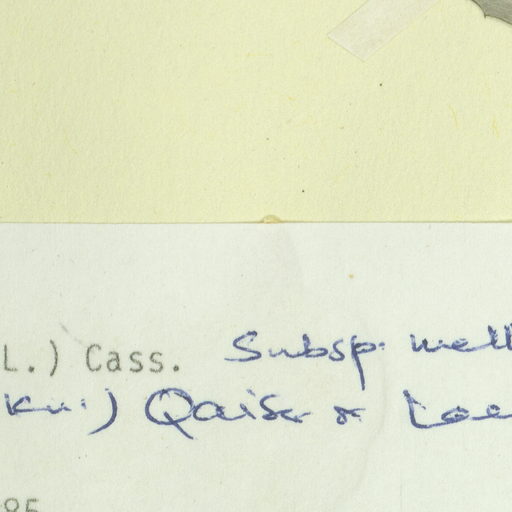 L.) Cass. Subsp. well
Ku.) Qaiser &
85